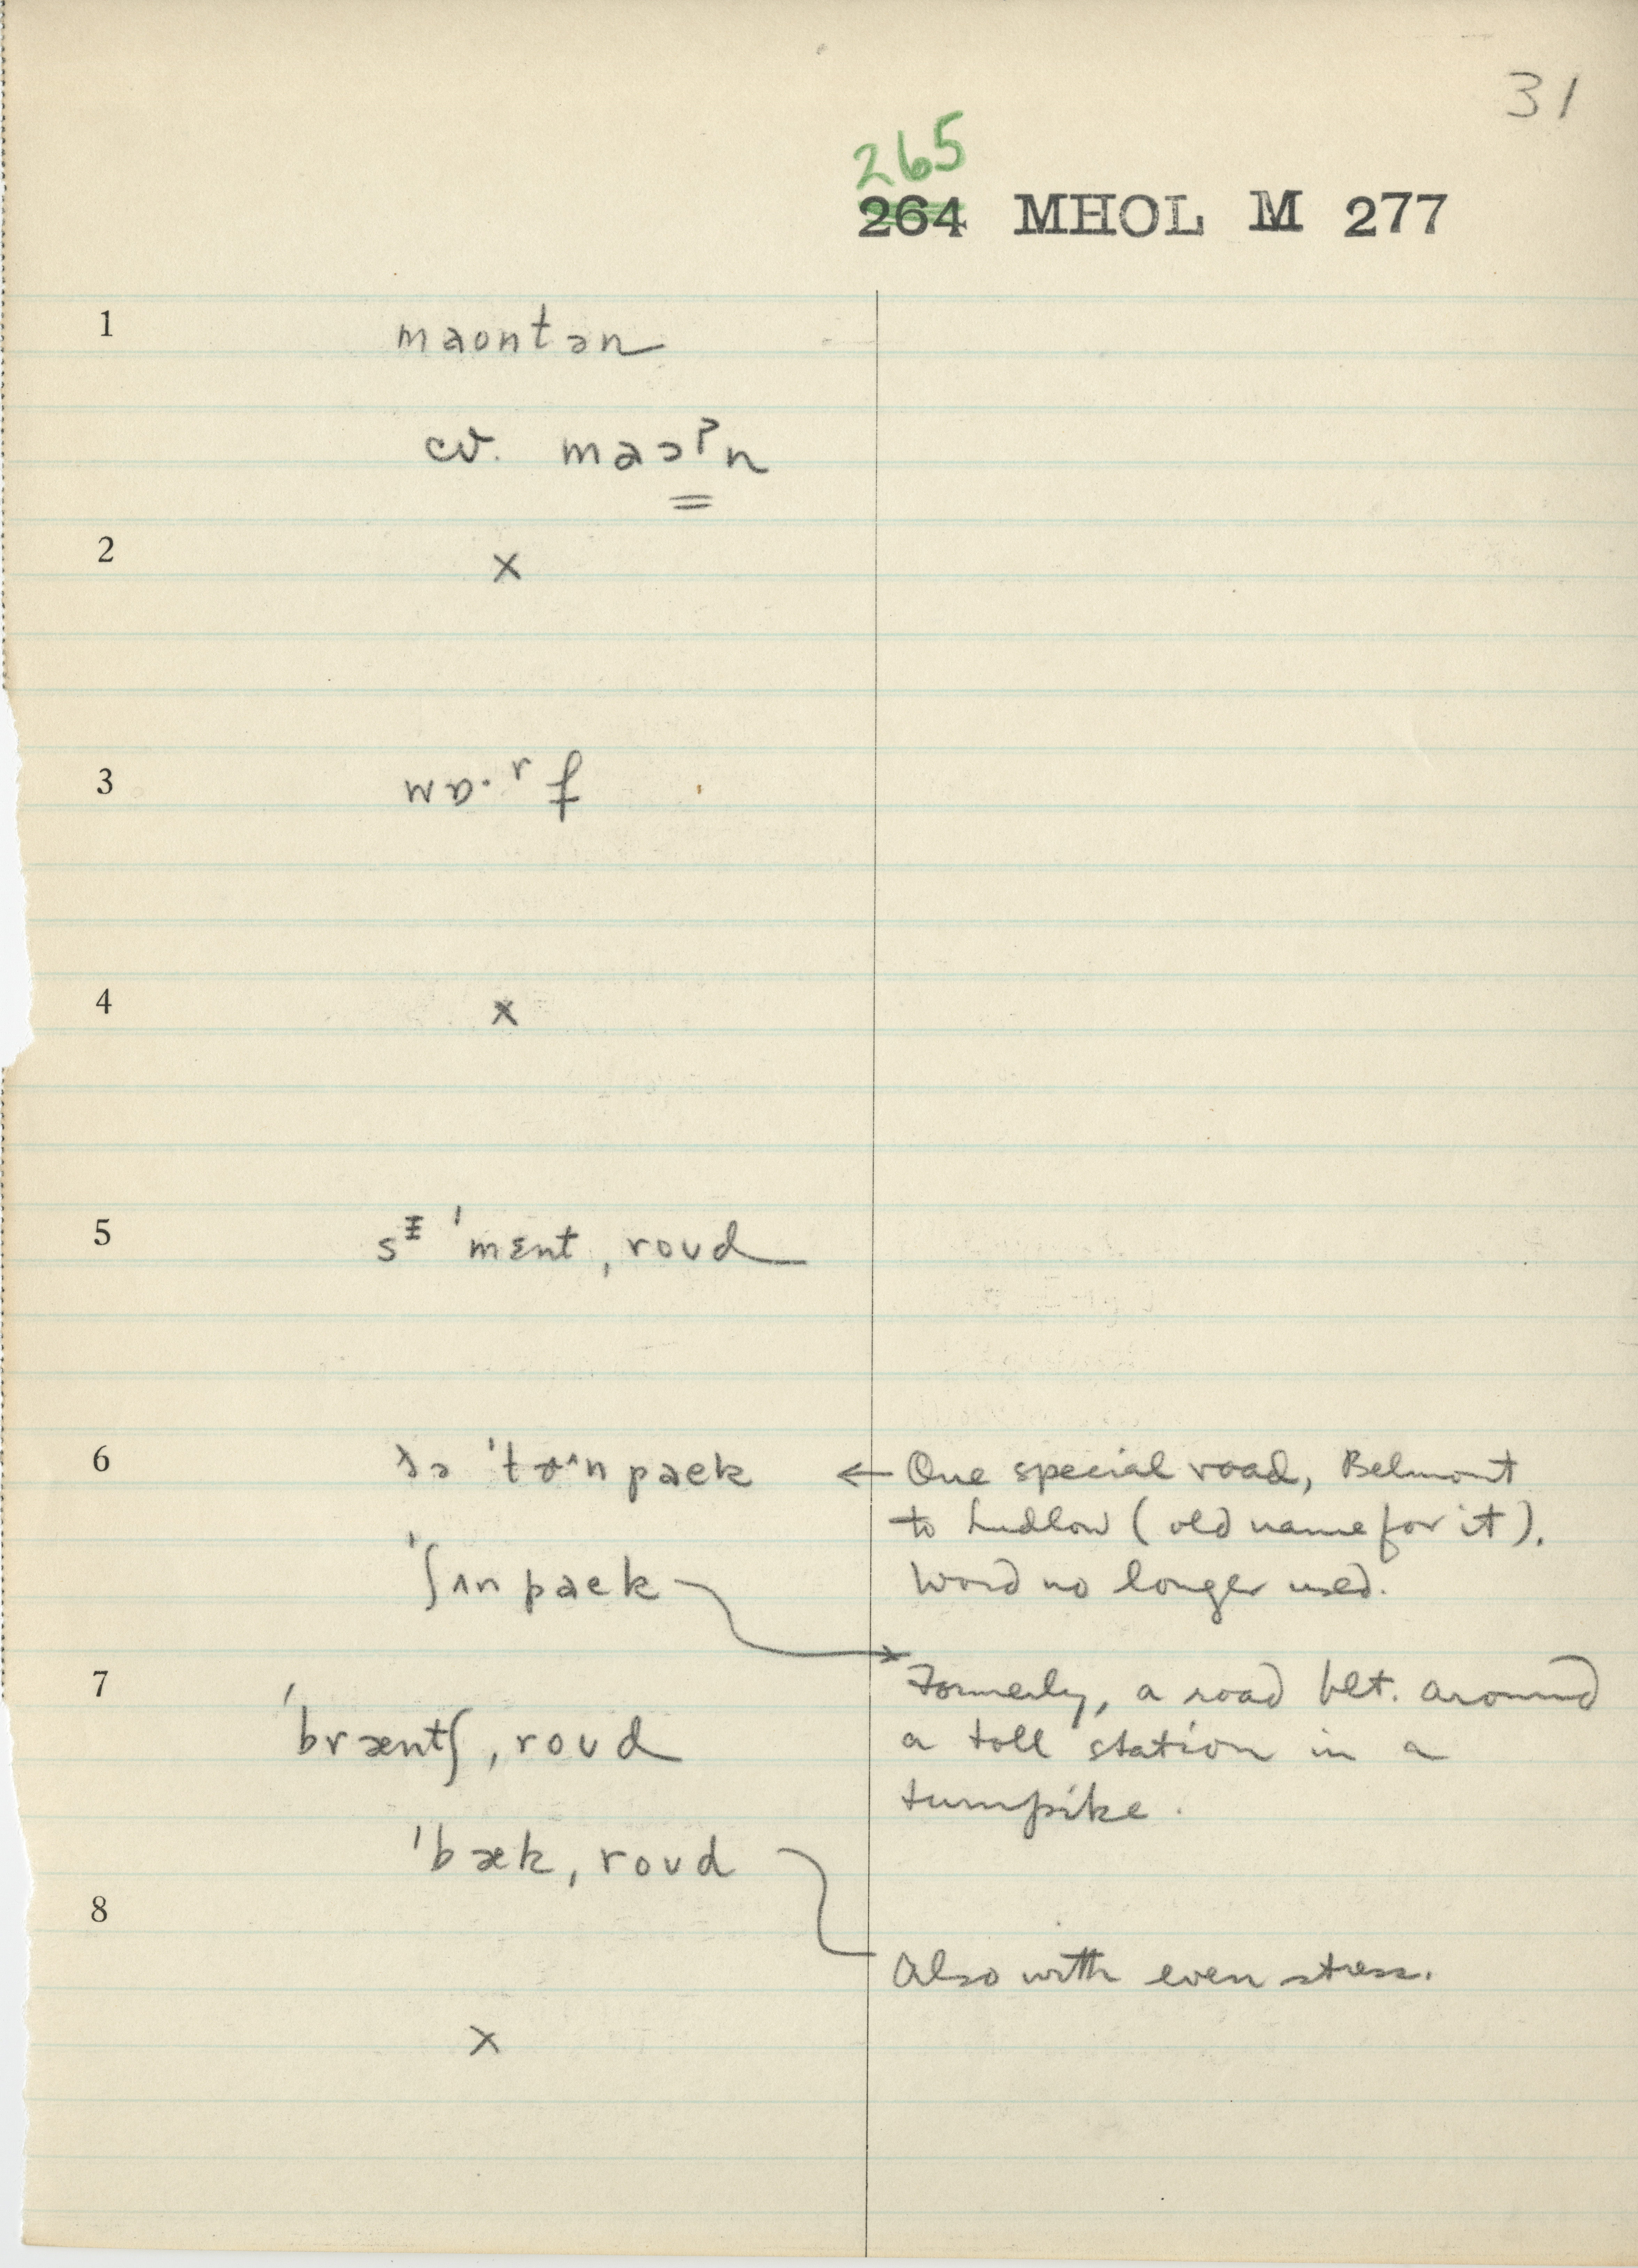 31
265
264 MHOL M 277
1 maontən
cv. maəʔn
2 x
3 wɒ·ʳf
4 x
5 sᵻˈmɛnt ˌroʊd
6 ðə ˈtɚnpaek ← One special road, Belmont
to Ludlow (old name for it).
Word no longer used.
ˈʃʌnpaek
7 Formerly, a road blt. around
ˈbræntʃ ˌroʊd a toll station in a
turnpike.
ˈbæk ˌroʊd
8
Also with even stress.
x